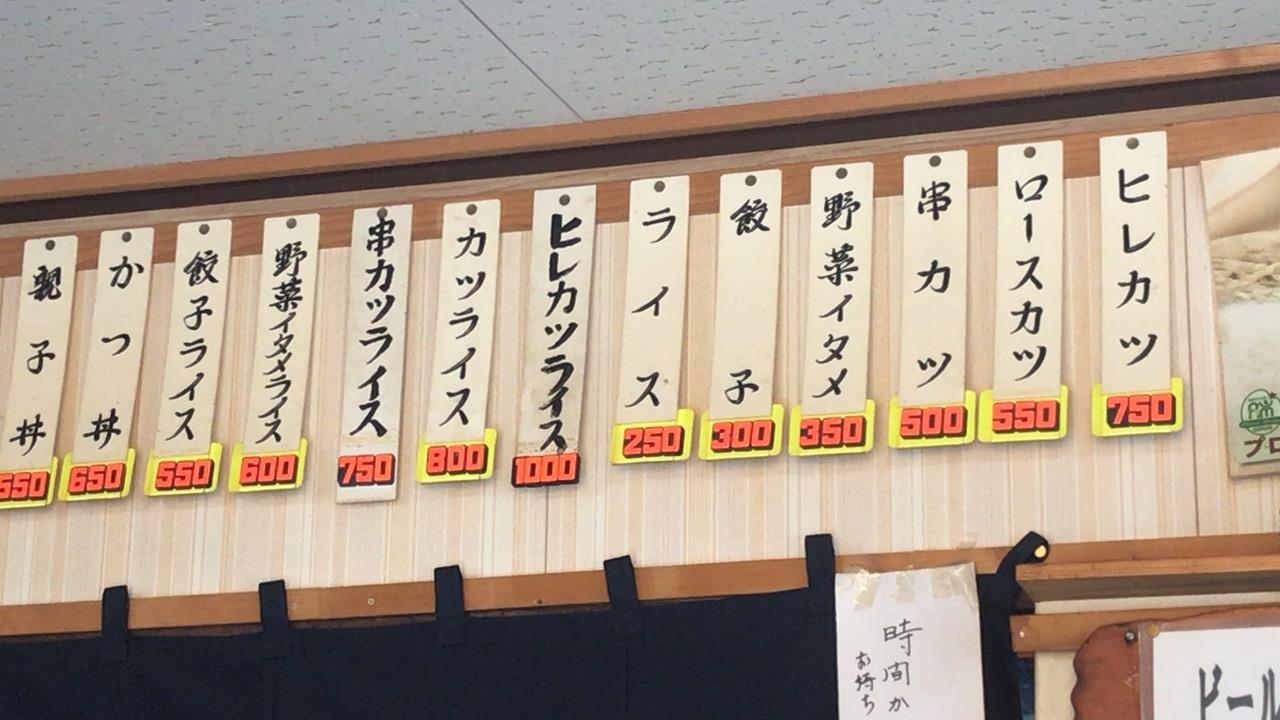 ヒレカツ
750
ロースカツ
550
串カツ
500
野菜イタメ
350
餃子
300
ライス
250
ヒレカツライス
1000
カツライス
800
串カツライス
750
野菜イタメライス
600
餃子ライス
550
かつ丼
650
親子丼
550
時間か
お待ち
ビール
プロ